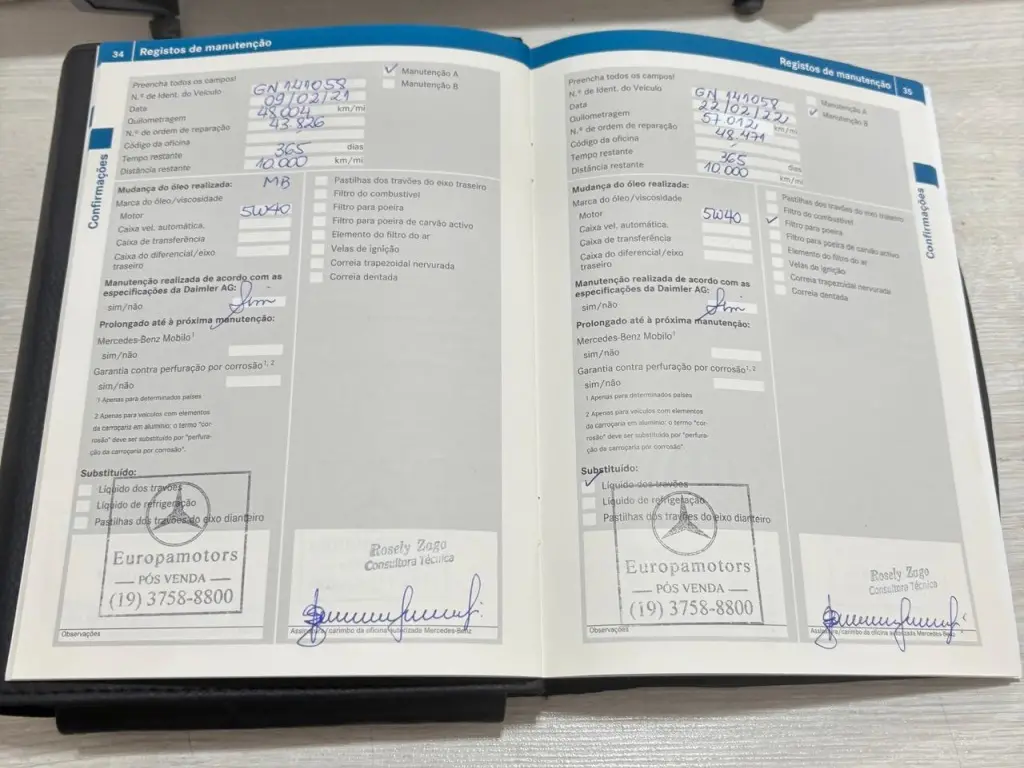 34 Registos de manutenção
Preencha todos os campos!
N.º de Ident. do Veículo GN 141058
Data 09/02/21
Quilometragem 48.004 km/mi
N.º de ordem de reparação 43.826
Código da oficina
Tempo restante 365 dias
Distância restante 10.000 km/mi
✓ Manutenção A
Manutenção B
Confirmações
Mudança do óleo realizada:
Marca do óleo/viscosidade MB
Motor 5W40
Caixa vel. automática.
Caixa de transferência
Caixa do diferencial/eixo
traseiro
Manutenção realizada de acordo com as
especificações da Daimler AG:
sim/não Sim
Prolongado até à próxima manutenção:
Mercedes-Benz Mobilo¹
sim/não
Garantia contra perfuração por corrosão¹, ²
sim/não
1 Apenas para determinados países
2 Apenas para veículos com elementos
da carroçaria em alumínio; o termo "cor-
rosão" deve ser substituído por "perfura-
ção da carroçaria por corrosão".
Pastilhas dos travões do eixo traseiro
Filtro do combustível
Filtro para poeira
Filtro para poeira de carvão activo
Elemento do filtro do ar
Velas de ignição
Correia trapezoidal nervurada
Correia dentada
Substituído:
Líquido dos travões
Líquido de refrigeração
Pastilhas dos travões do eixo dianteiro
Europamotors
PÓS VENDA
(19) 3758-8800
Observações
Rosely Zago
Consultora Técnica
Assinatura/carimbo da oficina autorizada Mercedes-Benz
Registos de manutenção 35
Preencha todos os campos!
N.º de Ident. do Veículo GN 141058
Data 22/02/22
Quilometragem 57.012 km/mi
N.º de ordem de reparação 48.471
Código da oficina
Tempo restante 365 dias
Distância restante 10.000 km/mi
Manutenção A
✓ Manutenção B
Confirmações
Mudança do óleo realizada:
Marca do óleo/viscosidade
Motor 5W40
Caixa vel. automática.
Caixa de transferência
Caixa do diferencial/eixo
traseiro
Manutenção realizada de acordo com as
especificações da Daimler AG:
sim/não Sim
Prolongado até à próxima manutenção:
Mercedes-Benz Mobilo¹
sim/não
Garantia contra perfuração por corrosão¹, ²
sim/não
1 Apenas para determinados países
2 Apenas para veículos com elementos
da carroçaria em alumínio; o termo "cor-
rosão" deve ser substituído por "perfura-
ção da carroçaria por corrosão".
Pastilhas dos travões do eixo traseiro
Filtro do combustível
✓ Filtro para poeira
Filtro para poeira de carvão activo
Elemento do filtro do ar
Velas de ignição
Correia trapezoidal nervurada
Correia dentada
Substituído:
✓ Líquido dos travões
Líquido de refrigeração
Pastilhas dos travões do eixo dianteiro
Europamotors
PÓS VENDA
(19) 3758-8800
Observações
Rosely Zago
Consultora Técnica
Assinatura/carimbo da oficina autorizada Mercedes-Benz